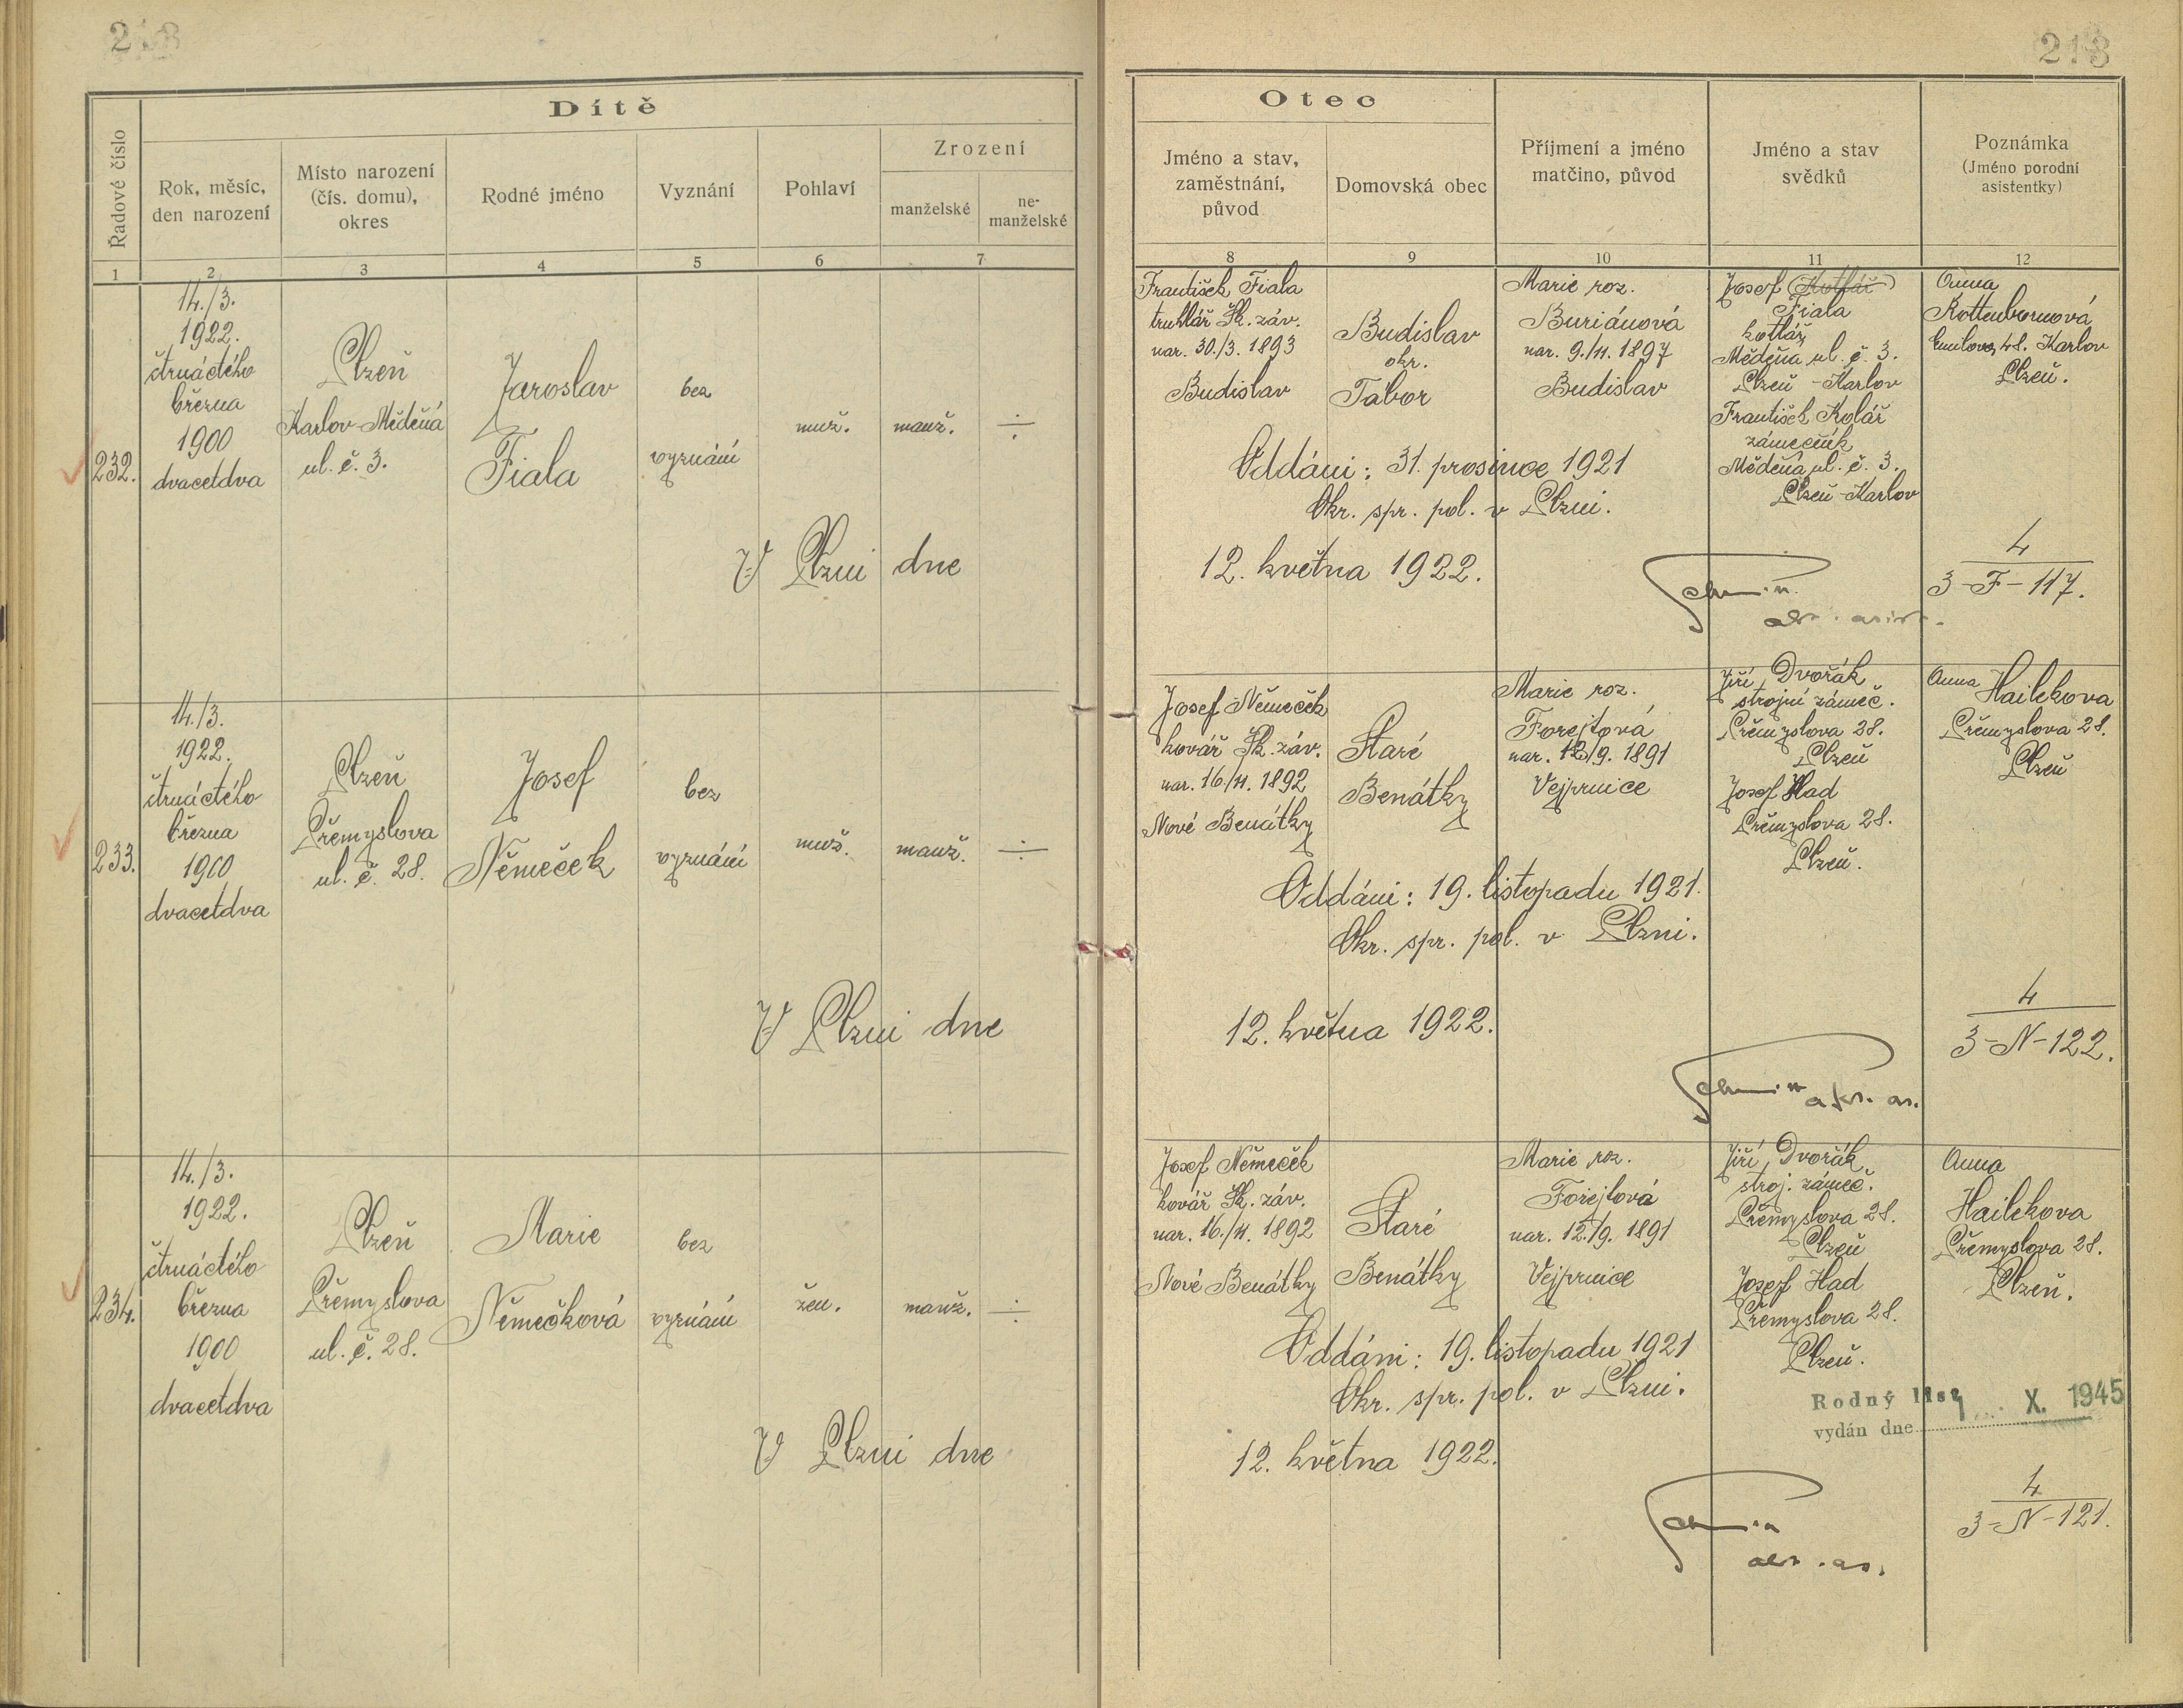 213
213
Dítě
Otec
Řadové číslo
Rok, měsíc,
den narození
Místo narození
(čís. domu),
okres
Rodné jméno
Vyznání
Pohlaví
Zrození
manželské
ne-
manželské
Jméno a stav,
zaměstnání,
původ
Domovská obec
Příjmení a jméno
matčino, původ
Jméno a stav
svědků
Poznámka
(Jméno porodní
asistentky)
1 2 3 4 5 6 7 8 9 10 11 12
232.
14./3.
1922.
čtrnáctého
března
1900
dvacetdva
Plzeň
Karlov-Měděná
ul. č. 3.
Jaroslav
Fiala
bez
vyznání
muž.
manž.
÷
František Fiala
truhlář Šk. záv.
nar. 30./3. 1893
Budislav
Budislav
okr.
Tabor
Marie roz.
Buriánová
nar. 9./11. 1897
Budislav
Josef (Kotlář)
Fiala
kotlář
Měděna ul. č. 3.
Plzeň-Karlov
František Kolář
zámečník
Měděná ul. č. 3.
Plzeň-Karlov
Anna
Rottenbornová
48. Karlov
Plzeň.
Oddáni: 31. prosince 1921
Okr. spr. pol. v Plzni.
V Plzni dne
12. května 1922.
4
3-F-117.
233.
14./3.
1922.
čtrnáctého
března
1900
dvacetdva
Plzeň
Přemyslova
ul. č. 28.
Josef
Němeček
bez
vyznání
muž.
manž.
÷
Josef Němeček
kovář Šk. záv.
nar. 16./11. 1892
Nové Benátky
Staré
Benátky
Marie roz.
Forejtová
nar. 12./9. 1891
Vejprnice
Jiří Dvořák
strojní zámeč.
Přemyslova 28.
Plzeň
Josef Had
Přemyslova 28.
Plzeň.
Anna Hailekova
Přemyslova 28.
Plzeň
Oddáni: 19. listopadu 1921.
Okr. spr. pol. v Plzni.
V Plzni dne
12. května 1922.
4
3-N-122.
234.
14./3.
1922.
čtrnáctého
března
1900
dvacetdva
Plzeň
Přemyslova
ul. č. 28.
Marie
Němečková
bez
vyznání
žen.
manž.
÷
Josef Němeček
kovář Šk. záv.
nar. 16./11. 1892
Nové Benátky
Staré
Benátky
Marie roz.
Forejtová
nar. 12./9. 1891
Vejprnice
Jiří Dvořák
stroj. zámeč.
Přemyslova 28.
Plzeň
Josef Had
Přemyslova 28.
Plzeň.
Anna
Hailekova
Přemyslova 28.
Plzeň.
Oddáni: 19. listopadu 1921
Okr. spr. pol. v Plzni.
Rodný list
vydán dne X. 1945
V Plzni dne
12. května 1922.
4
3-N-121.